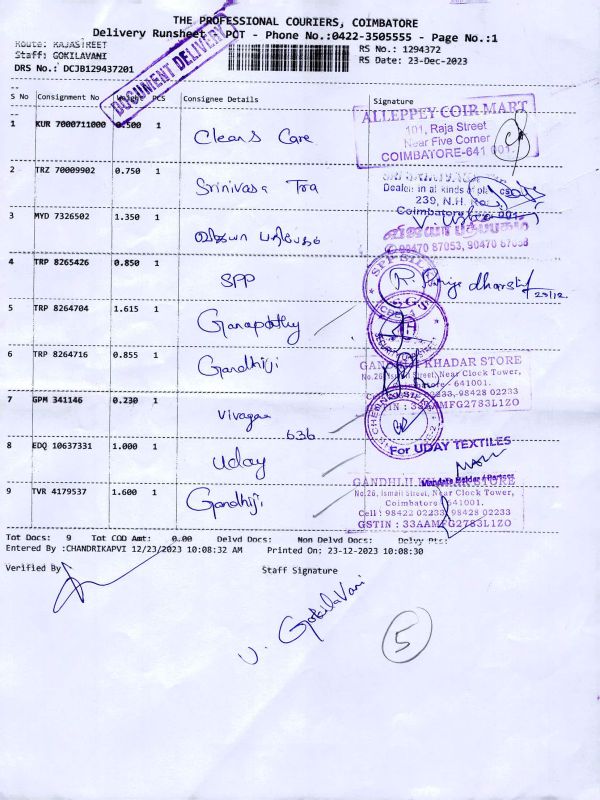 THE PROFESSIONAL COURIERS, COIMBATORE
Delivery Runsheet PCT - Phone No.:0422-3505555 - Page No.:1
Route: RAJASTREET
RS No.: 1294372
Staff: GOKILAVANI
RS Date: 23-Dec-2023
DRS No.: DCJB129437201
DOCUMENT DELIVERY
S No Consignment No Weight PCS Consignee Details Signature
1 KUR 7000711000 0.500 1 Cleans Care
ALLEPPEY COIR MART
101, Raja Street
Near Five Corner
COIMBATORE-641 001.
2 TRZ 70009902 0.750 1 Srinivasa Tra
Dealer in all kinds of
239, N.H. Road,
Coimbatore 001.
3 MYD 7326502 1.350 1
90470 87053, 90470 87058
4 TRP 8265426 0.850 1 SPP
SPP SILK
23/12
5 TRP 8264704 1.615 1 Ganapathy
6 TRP 8264716 0.855 1 Gandhiji
GANDHIJI KHADAR STORE
No.26, Ismail Street, Near Clock Tower,
Coimbatore - 641001.
98422 02233, 98428 02233
GSTIN : 33AAMFG2783L1ZO
7 GPM 341146 0.230 1 Vivagaa 636
CHENNAI SILKS
8 EDQ 10637331 1.000 1 Uday
For UDAY TEXTILES
9 TVR 4179537 1.600 1 Gandhiji
GANDHIJI KHADAR STORE
No.26, Ismail Street, Near Clock Tower,
Coimbatore - 641001.
Cell : 98422 02233, 98428 02233
GSTIN : 33AAMFG2783L1ZO
Tot Docs: 9 Tot COD Amt: 0.00 Delvd Docs: Non Delvd Docs: Delvy Pts:
Entered By :CHANDRIKAPVI 12/23/2023 10:08:32 AM Printed On: 23-12-2023 10:08:30
Verified By Staff Signature
V. GokilaVani
5